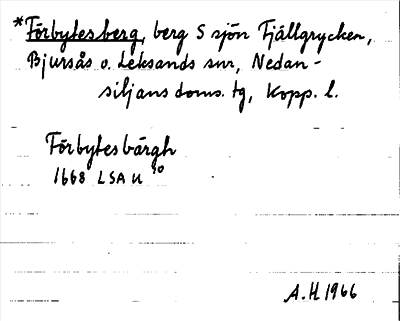 *Förbytesberg, berg S sjön Fjällgrycken,
Bjursås o. Leksands snr, Nedan-
siljans doms. tg, Kopp. l.
Förbytesbärgh
1668 LSA U 40
A.H. 1966